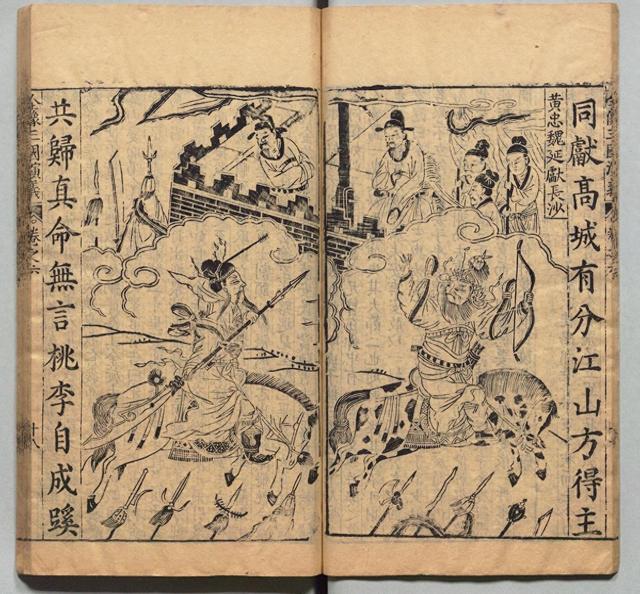 同獻髙城有分江山方得主
黃忠魏延獻長沙
共歸真命無言桃李自成蹊
三國演義 卷之六 廿八